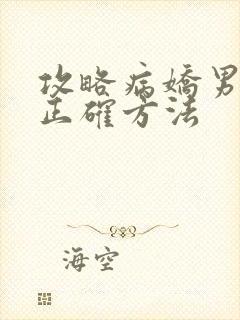 攻略病嬌男
正確方法
海空